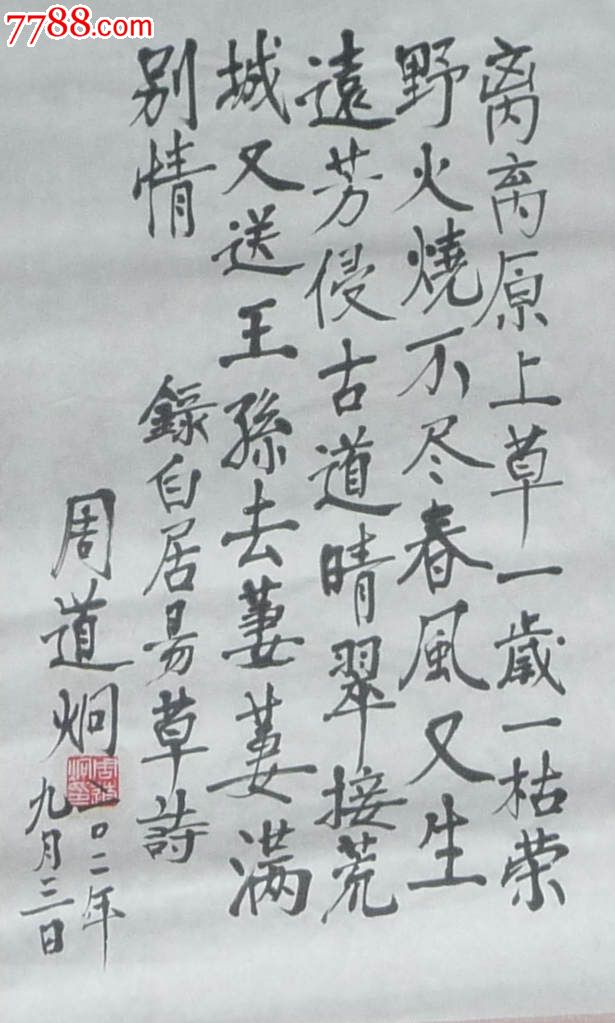 7788.com
离离原上草一歲一枯荣
野火燒不尽春風又生
遠芳侵古道晴翠接荒
城又送王孫去萋萋满
别情
錄白居易草詩
周道炯
〇二年
九月三日
周道炯印